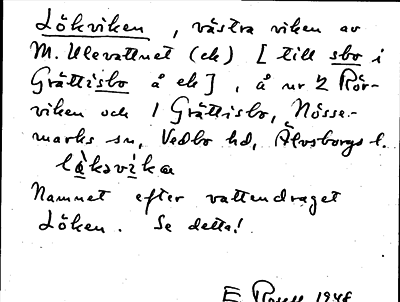 Lökviken, västra viken av
M. Ulevattnet (ek) [till sbo i
Grättisbo å ek], å nr 2 Rör-
viken och 1 Grättisbo, Nösse-
marks sn, Vedbo hd, Älvsborgs l.
Namnet efter vattendraget
Löken. Se detta!
E Rosell 1948